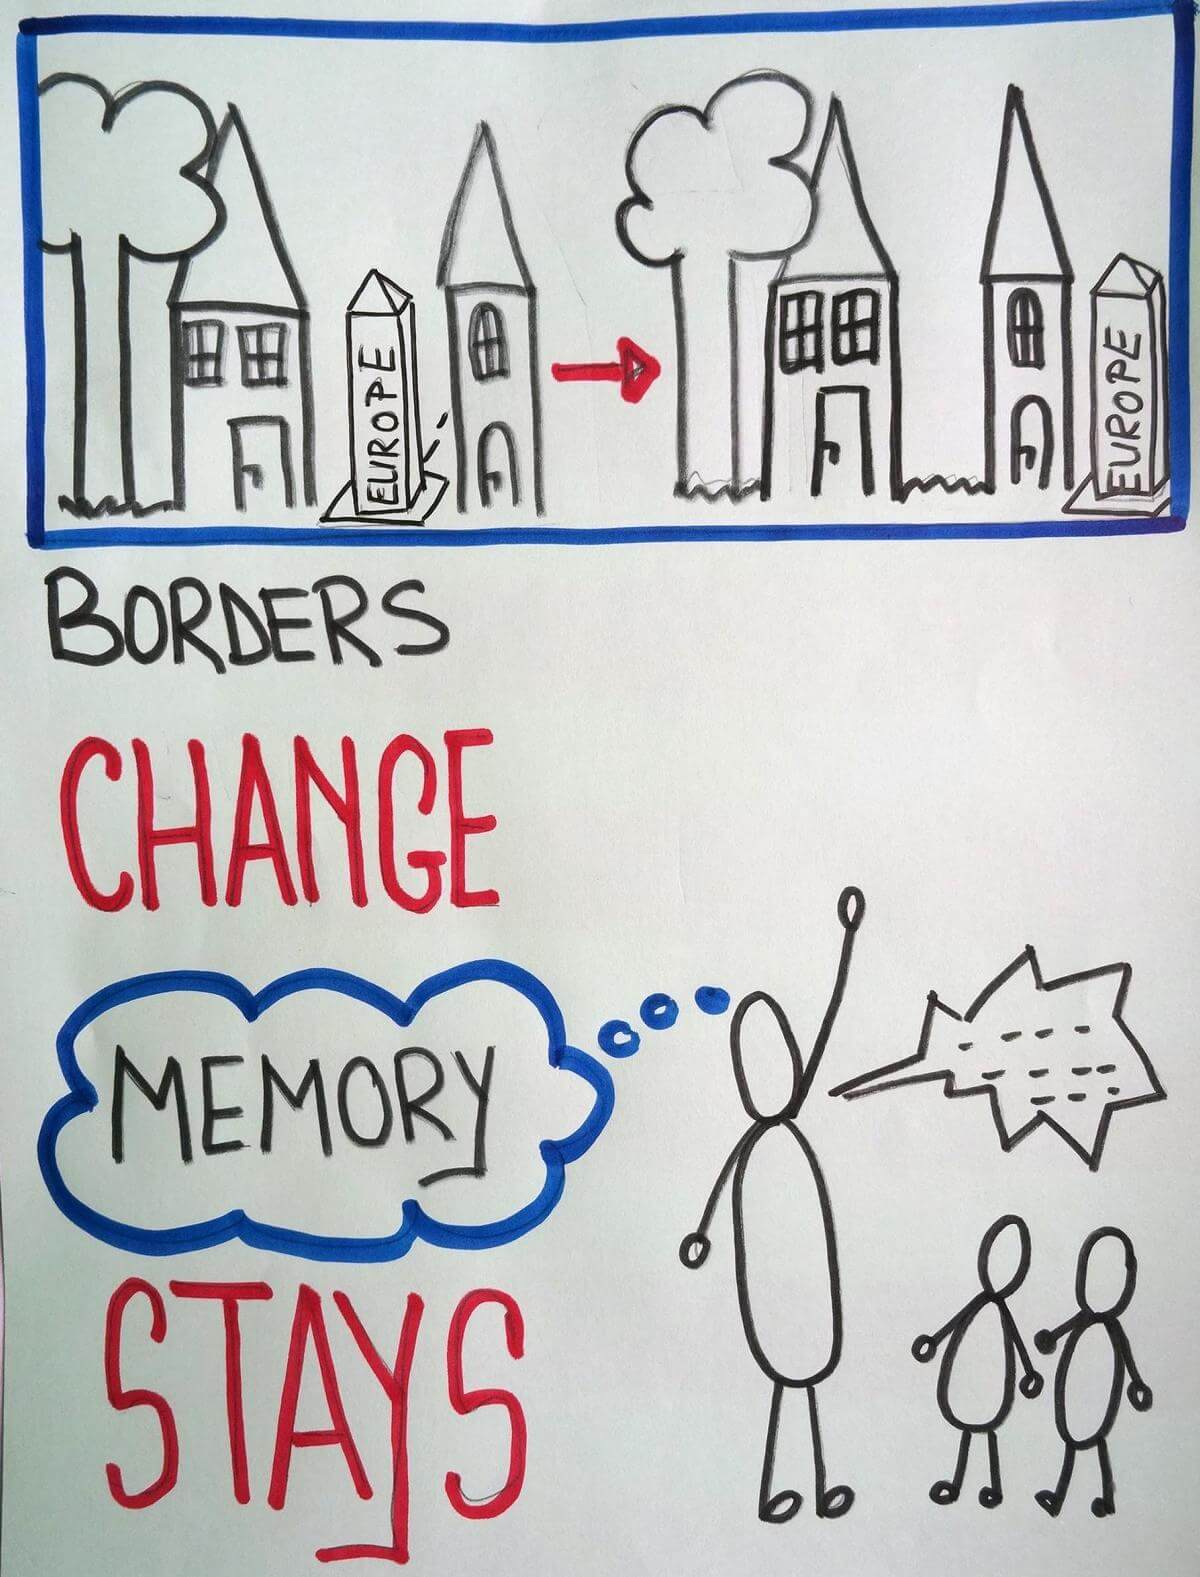 EUROPE
EUROPE
BORDERS
CHANGE
MEMORY
STAYS